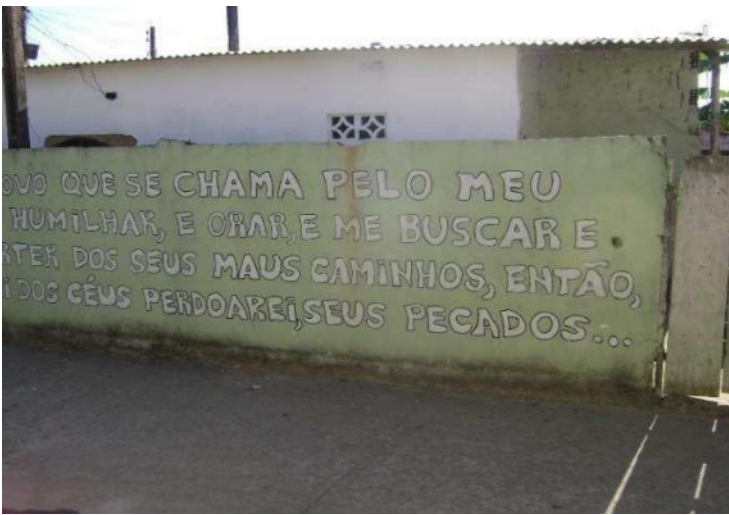 OVO QUE SE CHAMA PELO MEU
HUMILHAR, E ORAR, E ME BUSCAR E
RTER DOS SEUS MAUS CAMINHOS, ENTÃO,
I DOS CÉUS PERDOAREI, SEUS PECADOS...